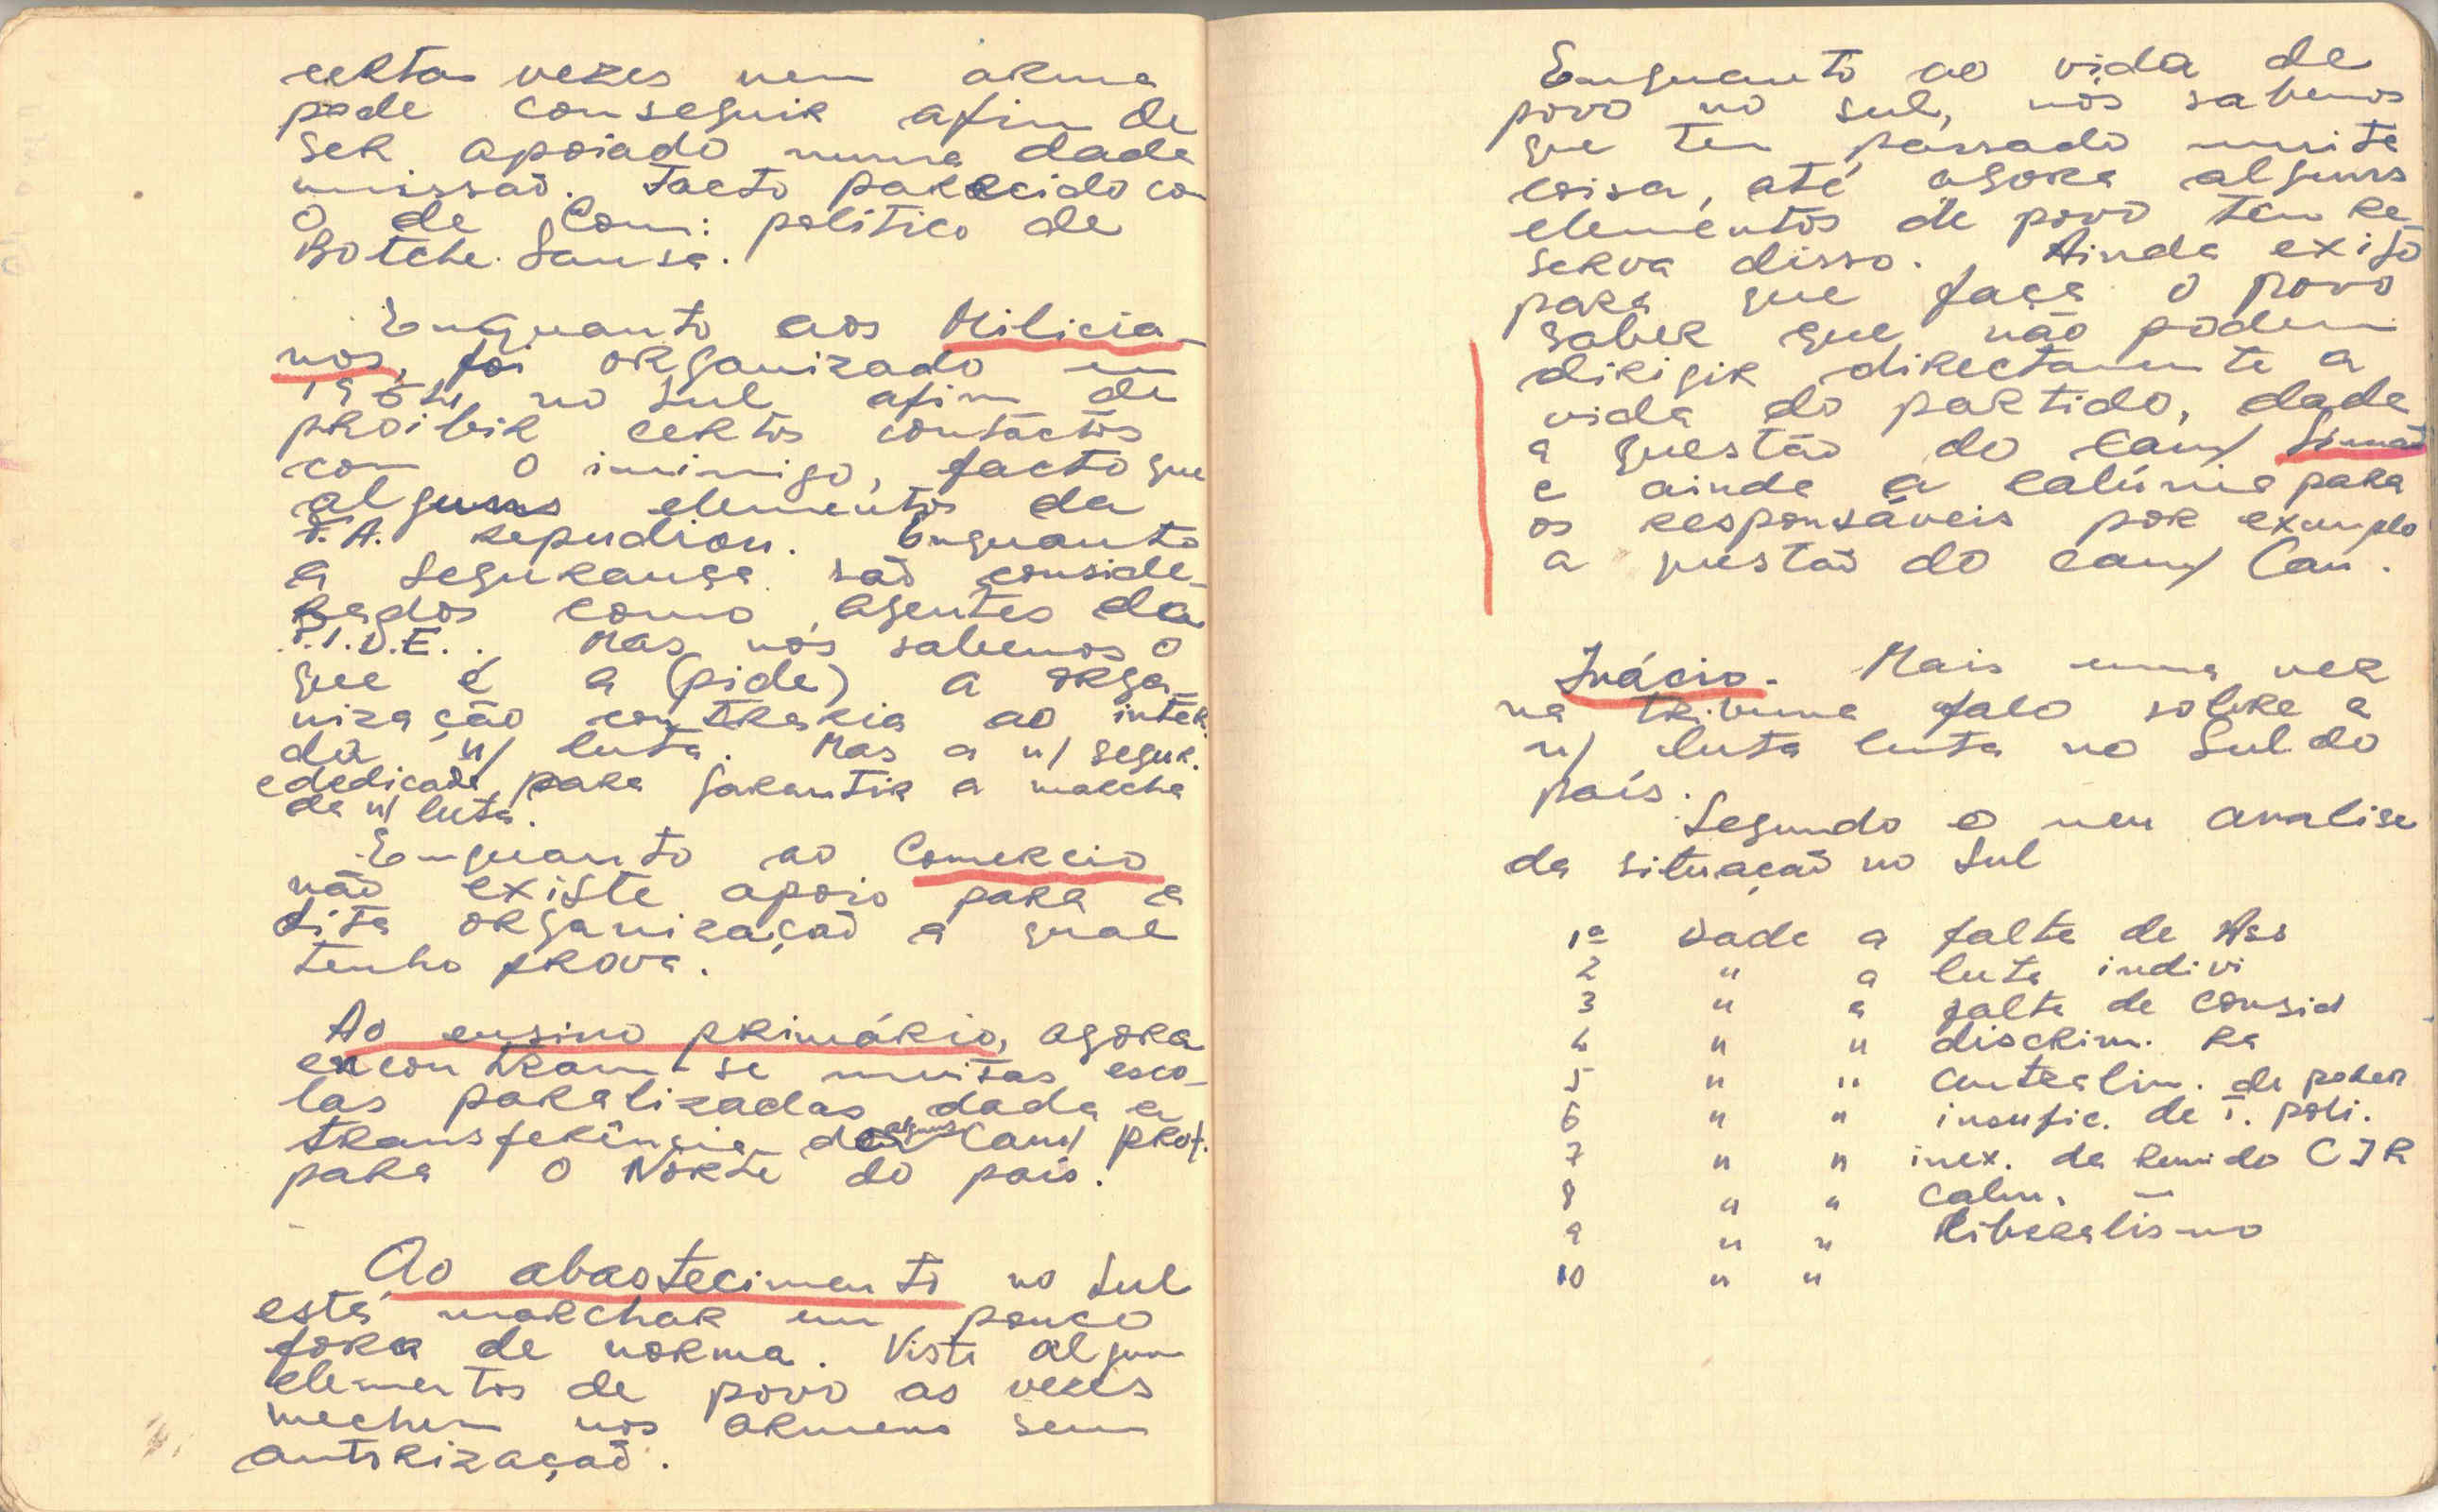 certas vezes nem arma
pode conseguir afim de
ser apoiado numa dada
missaõ. Facto parecido com
o de Com: político de
Botche Sansa.
Enquanto aos Milicia-
nos, foi organizado em
1964, no Sul afim de
proibir certos contactos
com o inimigo, facto que
alguns elementos da
F.A. repudiou. Enquanto
a Segurança saõ conside-
rados como agentes da
P.I.D.E.. Mas nós sabemos o
que é a (pide) a orga-
nização contraria ao inter.
da n/ luta. Mas a n/ segur.
e dedicada para garantir a marcha
da n/ luta.
Enquanto ao Comercio
não existe apoio para a
dita organizaçaõ a qual
tenho prova.
Ao ensino primário, agora
encontram-se muitas esco-
las paralizadas, dada a
transferência de alguns cam/ prof.
para o Norte do pais.
Ao abastecimento no Sul
está marchar um pouco
fora de norma. Visto algum
elementos de povo as vezes
mechem nos armens sem
autorizaçaõ.
Enquanto ao vida de
povo no sul, nós sabemos
que tem passado muita
coisa, até agora alguns
elementos de povo tem re-
serva disso. Ainda exijo
para que faça o povo
saber que não podem
dirigir directamente a
vida do partido, dada
a questão do cam/ Simaõ
e ainda a calúnia para
os responsáveis por exemplo
a questaõ do cam/ Can.
Inácio. Mais uma vez
na tribuna falo sobre a
n/ luta luta no Sul do
país.
Segundo o meu analise
da situaçaõ no Sul
1º Dada a falta de Ass
2 " a luta indivi
3 " a falta de consid
4 " " discrim. ra
5 " " centralim. de poder
6 " " insufic. de t. poli.
7 " " inex. da reunido CIR
8 " " calun. —
9 " " liberalismo
10 " "